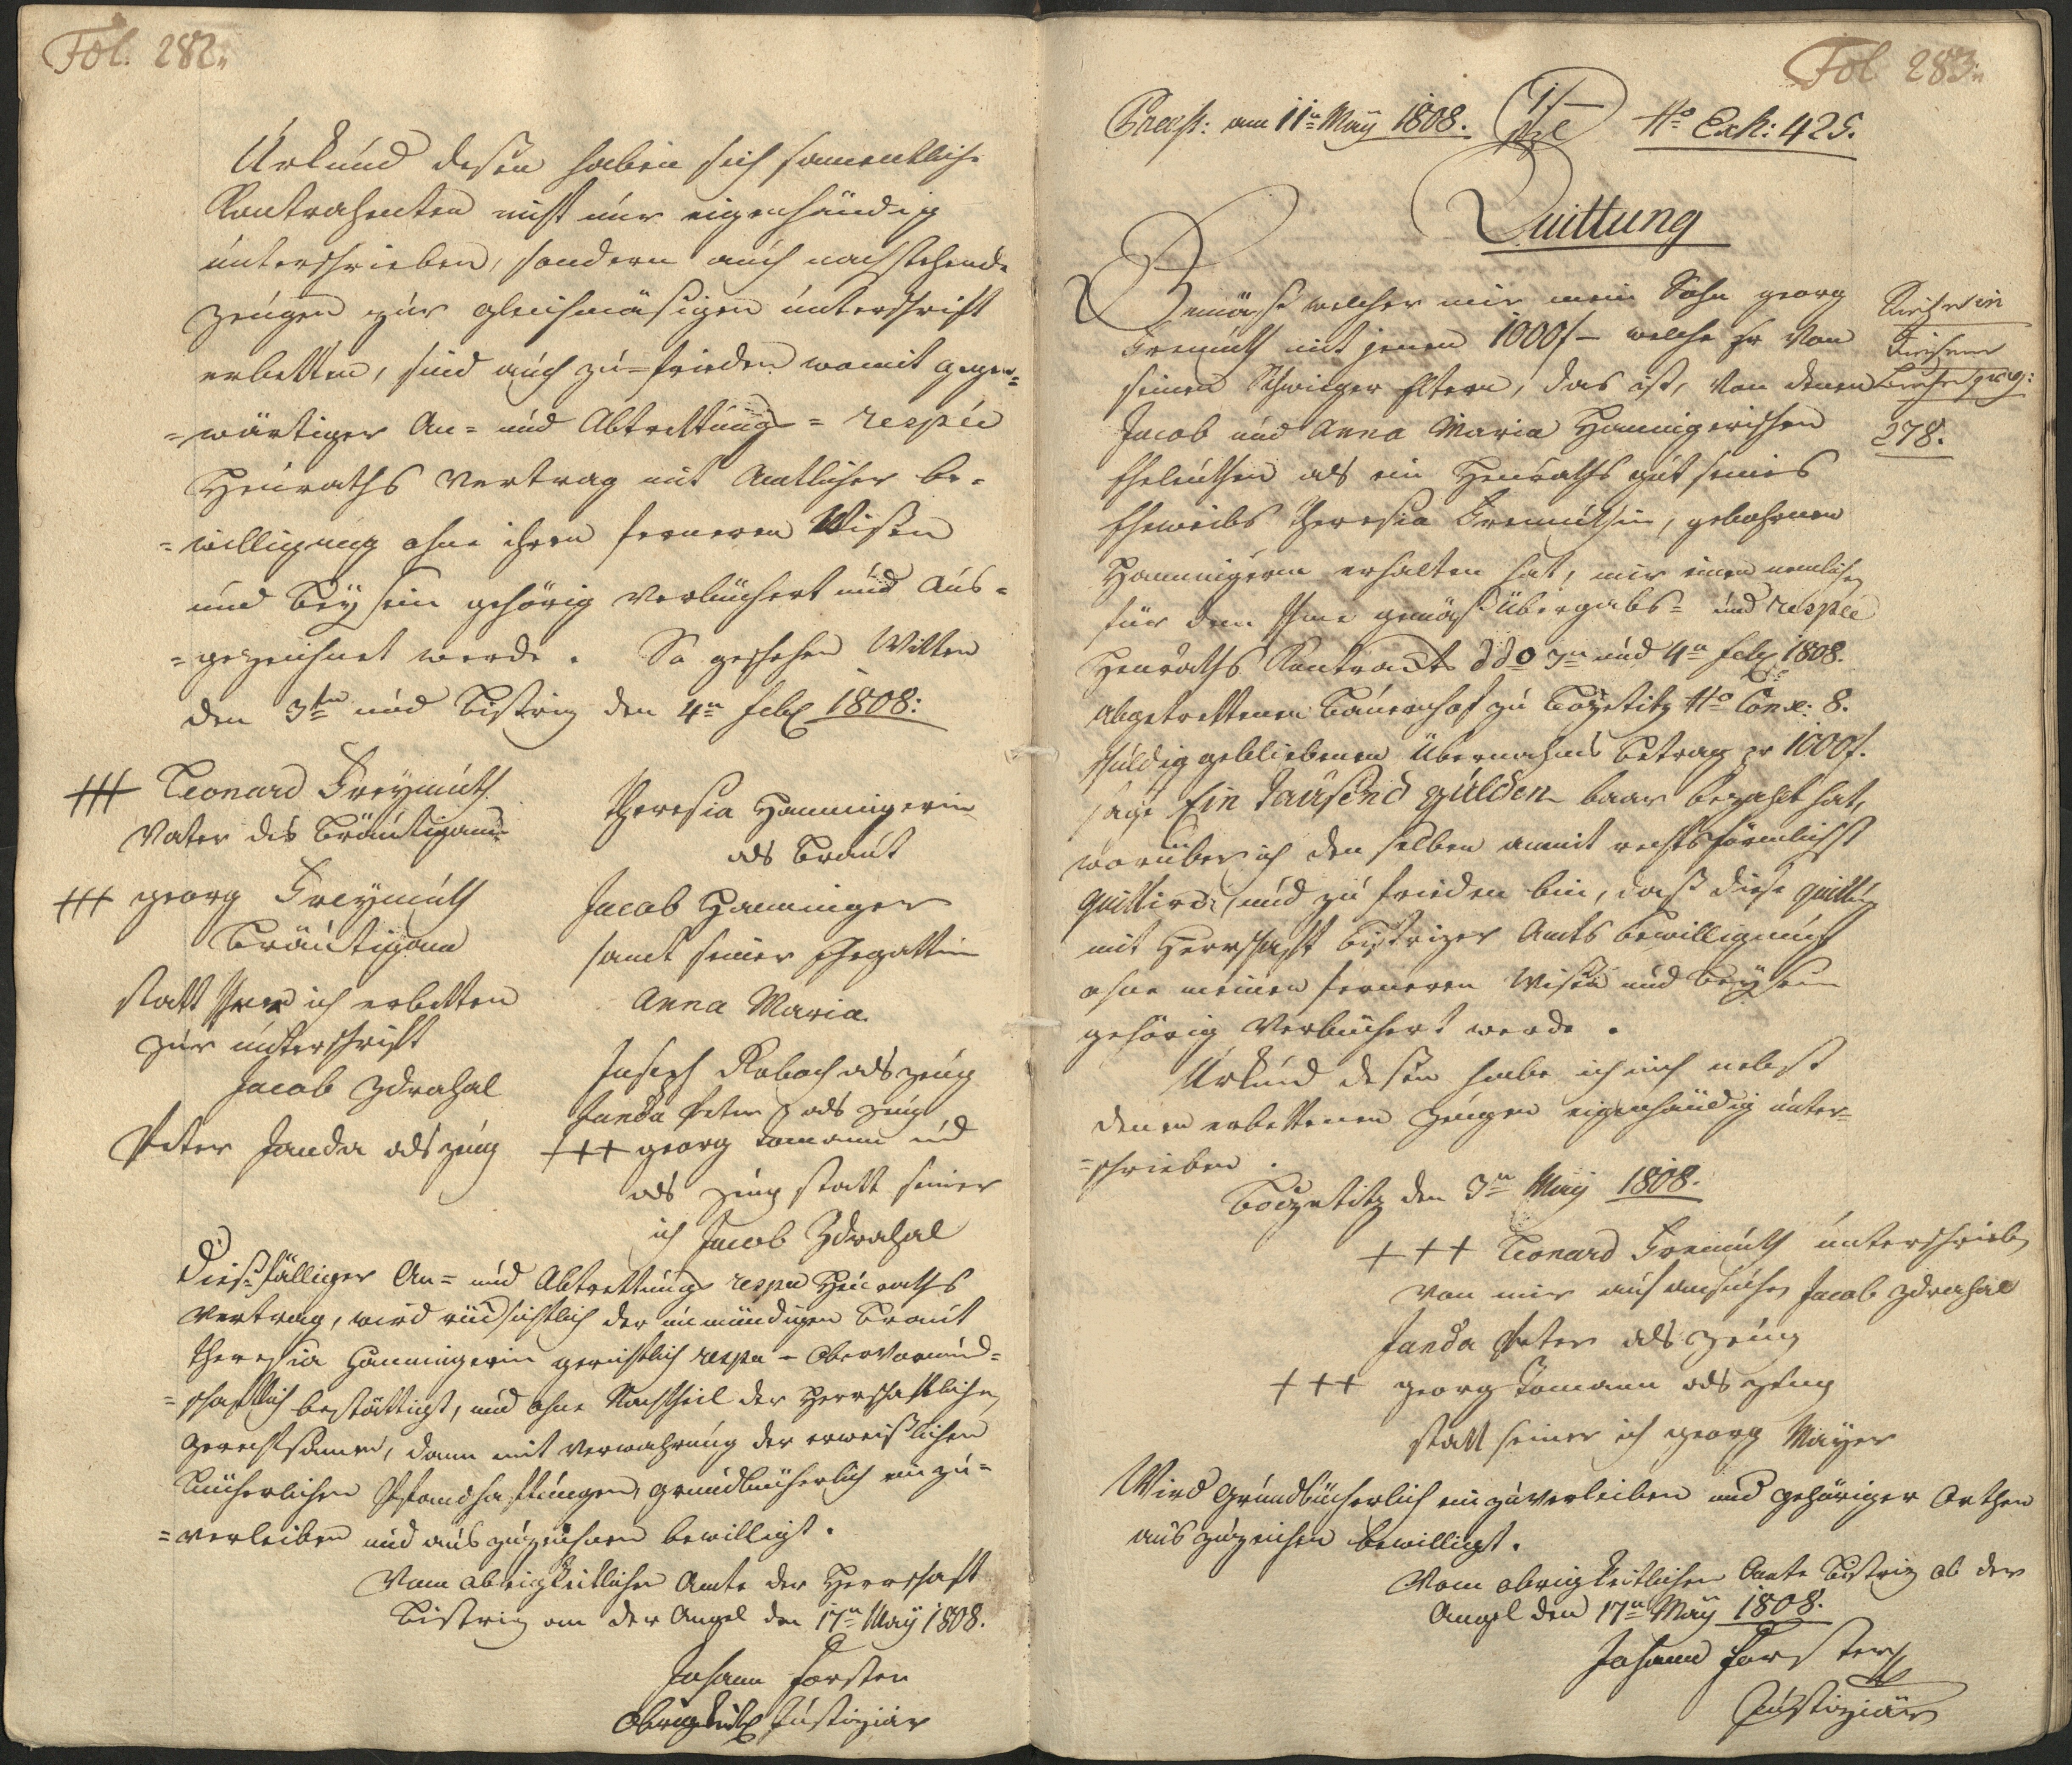 Fol. 282.
Urkund deßen haben sich samentliche
Kontrahenten nicht nur eigenhändig
unterschrieben, sondern auch nachstehende
Zeugen zur gleichmäsigen unterschrift
erbetten, sind auch zu-frieden womit gegen=
=wärtiger An= und Abtrettungs= respve
Heuraths Vertrag mit Amtlicher be=
=willigung ohne ihren ferneren Wißen
und Beysein gehörig verbüchert und aus=
=gezeichnet werde. So geschehen Witten
den 3ten und Bistriz den 4n feb 1808:
+++ Leonard Freymuth
Vater des Bräutigams
+++ georg Freymuth
Bräutigam
statt ich erbetten
zur unterschrift
Jacob Zdrahal
Peter Janda als zeug
Theresia Hanningerin
als Braut
Jacob Hanninger
samt seiner Ehegattin
Anna Maria.
Joseph Kobach als zeug
Janda Peter als zeug
+++ georg Tomann
als zeug statt seiner
ich Jacob Zdrahal
Dießfälliger An= und Abtrettungs respve Heuraths
Vertrag, wird rücksichtlich der unmündigen Braut
Theresia Hanningerin gerichtlich respve - obervormund=
=schaftlich bestättigt, und ohne Nachtheil der Herrschaftlichen
Gerechtsamen, dann mit Verwahrung der erweißlichen
Bücherlichen Pfandhaftungen, grundbücherlich einzu=
=verleiben und auszuzeichnen bewilligt.
Vom obrigkeitlichen Amte der Herrschaft
Bistriz an der Angel den 17n May 1808.
Johann Forster
Obrigkeitl Justiziär
Fol 283.
Praest: am 11n May 1808. No Exh: 425.
Quittung
Gemäß welcher mir mein Sohn georg
Fremuth mit jenen 1000f- welche er von
seinen Schwieger Eltern, das ist, von denen
Jacob und Anna Maria Hanningerischen
Eheleuthen als ein Heuraths gut seines
Eheweibs Theresia Fremuthin, gebohrnen
Hanningerin erhalten hat, mir einen nemlichen
für den Ihme gemäß Übergabs= und respve
Heuraths Kontract ddo 3n und 4n feb 1808.
abgetrettenen Bauernhof zu Bozetitz No Conx: 8.
schuldig gebliebenen Übernahms Betrag pr 1000f.
sage Ein Tausend gulden baar bezahlt hat,
worüber ich den selben anmit rechtsförmlichst
quittire, und zu frieden bin, daß diese quittung
mit Herrschaft Bistrizer Amts bewilligung
ohne meinen ferneren Wißen und Beysein
gehörig Verbüchert werde.
Urkund deßen habe ich mich nebst
denen erbettenen zeugen eigenhändig unter=
=schrieben.
Bozetitz den 3n May 1808.
+++ Leonard Fremuth unterschrieben
von mir auf ansuchen Jacob Zdrahal
Janda Peter als zeug
+++ georg Tomann als zeug
statt seiner ich georg Mayer
Wird Grundbücherlich einzuverleiben und gehöriger Orthen
auszuzeichen bewilligt.
Vom obrigkeitlichen Amte Bistriz ob der
Angel den 17n May 1808.
Johann Forster
Justiziär
278.